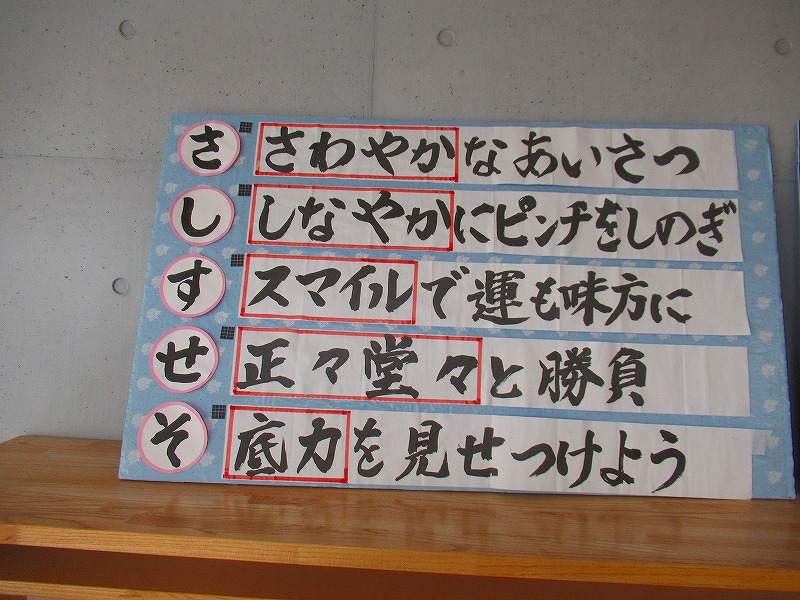 さ さわやかなあいさつ
し しなやかにピンチをしのぎ
す スマイルで運も味方に
せ 正々堂々と勝負
そ 底力を見せつけよう